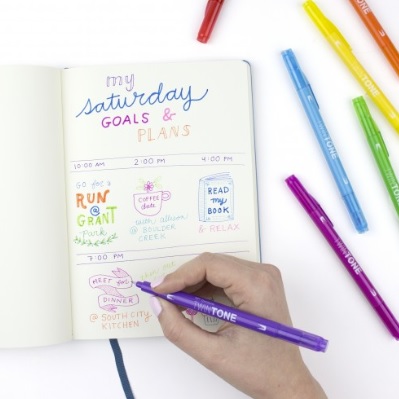 my
saturday
GOALS &
PLANS
10:00 AM 2:00 PM 4:00 PM
GO for a
RUN
@
GRANT
Park
COFFEE
date
with allison
@ BOULDER
CREEK
READ
my
BOOK
& RELAX
7:00 PM
MEET for
DINNER
@ SOUTH CITY
KITCHEN
TWINTONE
TWINTONE
TWINTONE
TONE
TONE
TONE